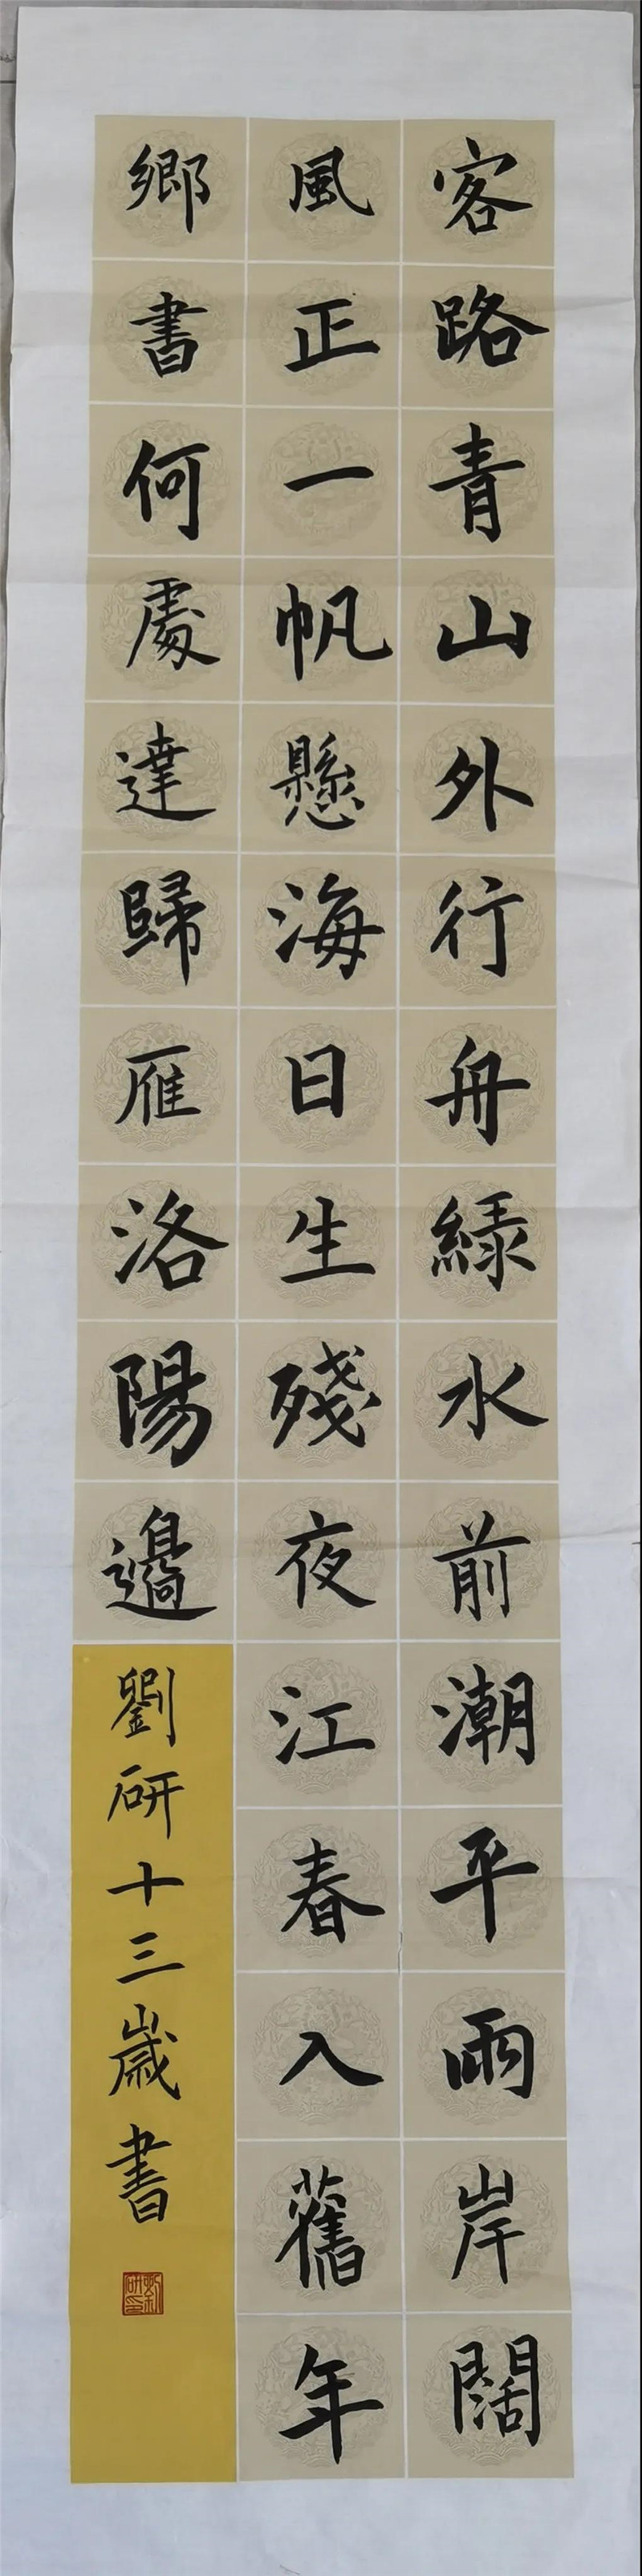 客路青山外行舟綠水前潮平兩岸闊
風正一帆懸海日生殘夜江春入舊年
鄉書何處達歸雁洛陽邊
劉研十三歲書
劉研印